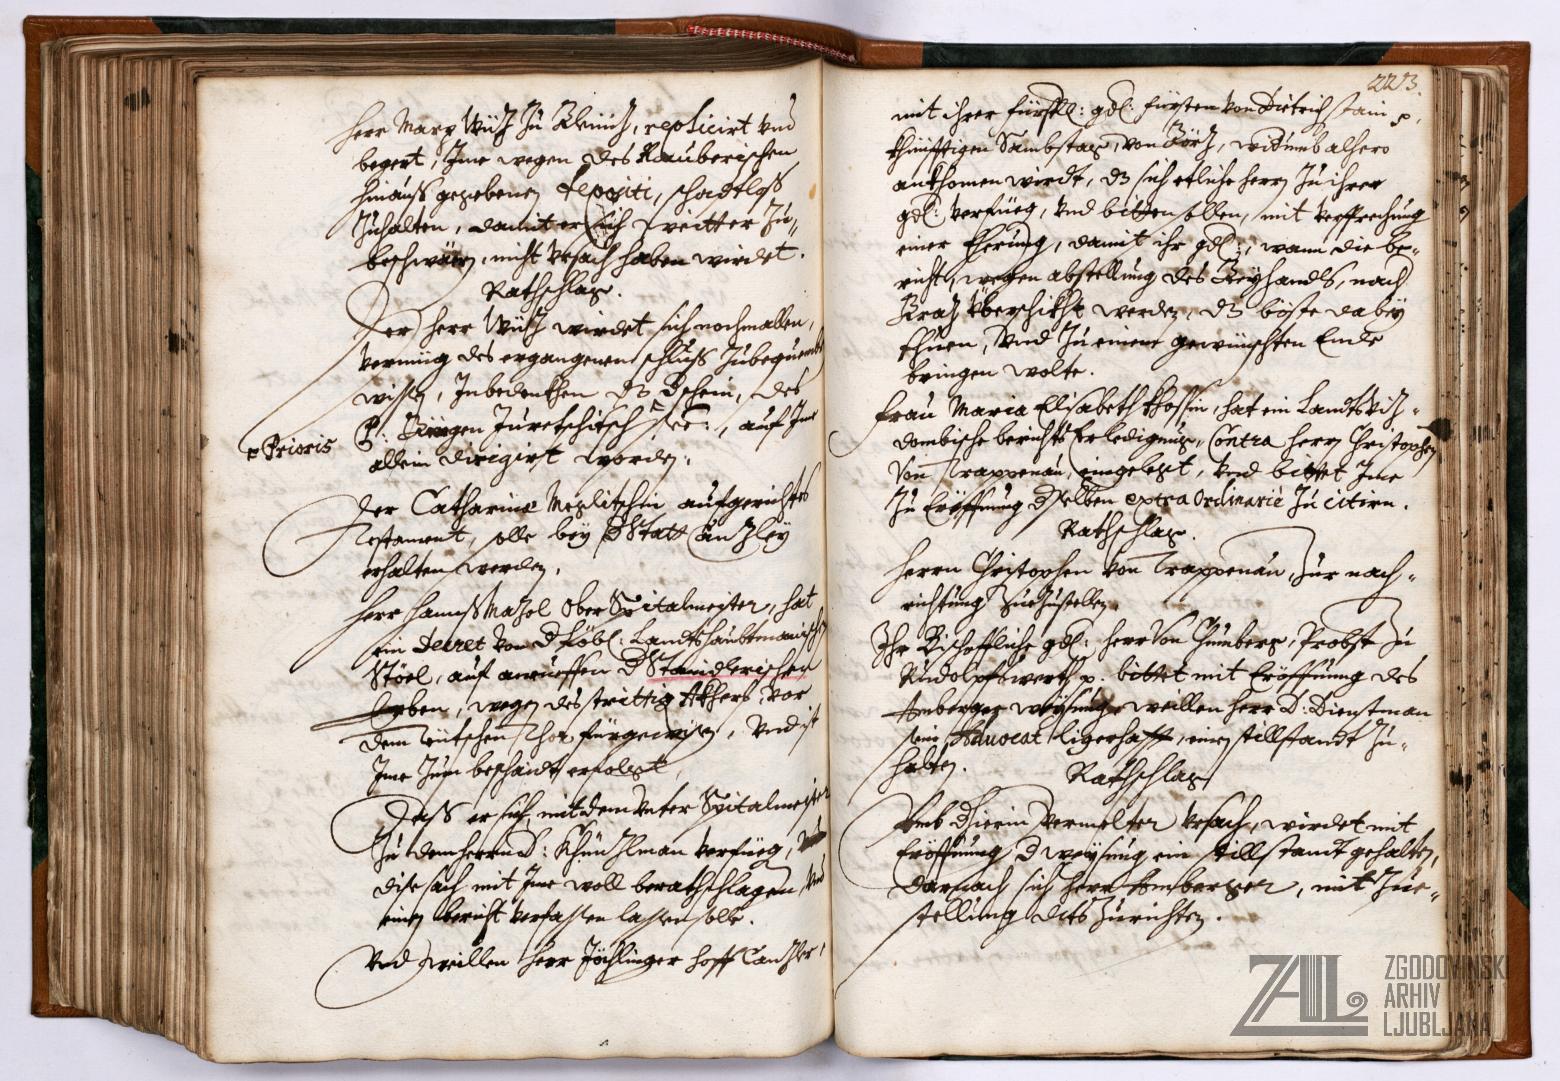 Herr Marx Wiz zu Kleiniz, replicirt und
begert, Ime wegen des Rauberischen
hinauß gegebenen depositi, schadtloß
Zuhalten, damit er sich weitter zu
beschwären, nicht ursach haben wirdet.
Rathschlag.
Der herr Wiz wirdet sich nochmallen,
vermüg des ergangenen schluß zubequemen
wissen, In bedenkhen dz dschein, des
auf Ime
P Prioris
allein dirigirt worden.
Der Catharina aufgerichtes
Testament, solle bey DStatt Canzley
erhalten werden.
Herr Hannß Mazol Ober Spitalmeister, hat
ein Decret von Dlöbl: Landtshaubtmanischen
Stöel, auf anrueffen DStandlerischen
Erben, wegen des strittig Akhers, vor
dem Teütschen Thor fürgewisen, und ist
Ime zum beschaidt ervolgt,
Dass er sich mit dem Unter Spitalmeister
zu dem herrn D: verfüeg,
dise sach mit Ime woll berathschlagen, und
einen bericht verfassen lassen solle.
Und weillen herr Jöchlinger Hoff Canzler,
223.
mit ihrer fürstl: gdl: Fürsten von Dietrichstain p.
khünfftigen Sambstag, von Görz, widumb alhero
ankhomen wirdt, dz sich etliche herrn zu ihrer
gdl: verfüeg, und bitten sollen, mit versprechung
einer Eherung, damit ihr gdl:, wann die be-
richt, wegen abstellung des Geyhandls, nach
Graz überschikht werden, dz böste dabey
thuen, und zu einem gewünschten Ende
bringen wolte.
Frau Maria Elisabeth hat ein Landtsviz-
dombische berichts Erledigung, Contra herrn Christophen
von Trappenau, eingelegt, und bittet Ime
zu Eröffnung Dselben extra Ordinarie zu citirn.
Rathschlag.
Herrn Christophen von Trappenau, zur nach-
richtung zuezustellen
Ihr Bischoffliche gdl: herr von Probst zu
Rudolpfswerth p. bittet mit Eröffnung des
Amberger weysung, weillen herr D: Dienstman
sein Advocat ligerhafft, einen stillstandt zu-
halten.
Rathschlag
Umb dhierin vermelter ursach, wirdet mit
Eröffnung Dweysung ein stillstandt gehalten,
darnach sich herr Amberger, mit zue-
stellung dits zurichten.
ZAL ZGODOVINSKI
ARHIV
LJUBLJANA